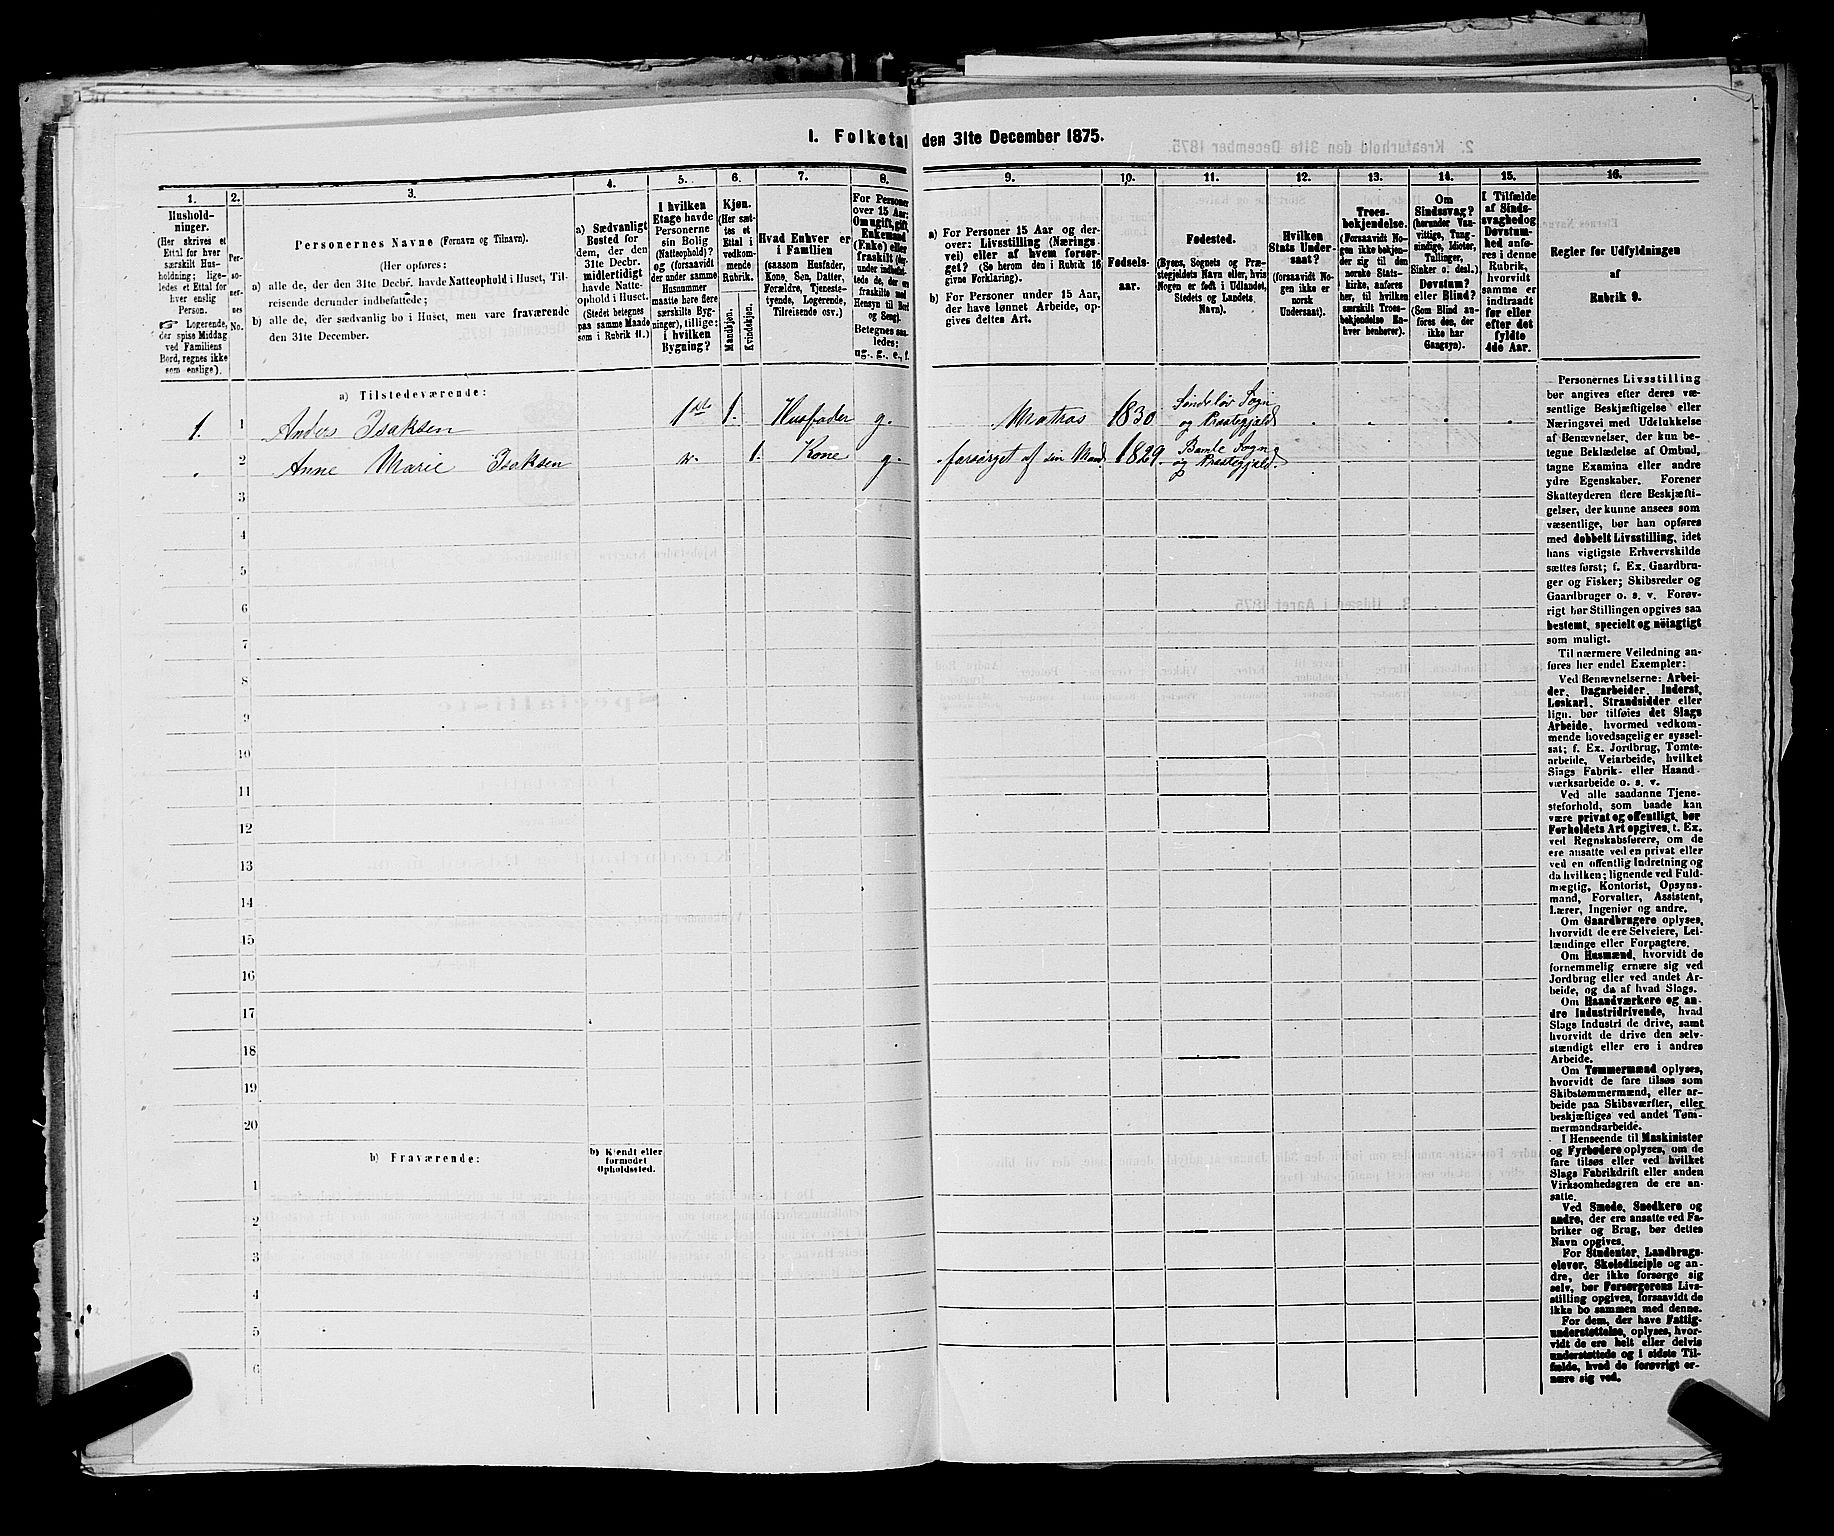 I. Folketal den 31te December 1875.
1.
2.
3.
4.
5.
6.
7.
8.
9.
10.
11.
12.
13.
14.
15.
16.
Hushold-
ninger.
(Her skrives et
Ettal for hver
særskilt Hus-
holdning; lige-
ledes et Ettal for
hver enslig
Person.
☞ Logerende,
der spise Middag
ved Familiens
Bord, regnes ikke
som enslige).
Per-
so-
ner-
nes
No.
Personernes Navne (Fornavn og Tilnavn).
(Her opføres:
a) alle de, der den 31te Decbr. havde Natteophold i Huset, Til-
reisende derunder indbefattede;
b) alle de, der sædvanlig bo i Huset, men vare fraværende
den 31te December.
a) Sædvanligt
Bosted for
dem, der den
31te Decbr.
midlertidigt
havde Natte-
ophold i Huset.
(Stedet betegnes
paa samme Maade
som i Rubrik 11.)
I hvilken
Etage havde
Personerne
sin Bolig
(Natteophold)?
og (forsaavidt
der under samme
Husnummer
maatte høre flere
særskilte Byg-
ninger), tillige:
i hvilken
Bygning?
Kjøn.
(Her sæt-
tes et
Ettal i
vedkom-
mende
Rubrik.
Mandkjøn.
Kvindekjøn.
Hvad Enhver er
i Familien
(saasom Husfader,
Kone, Søn, Datter,
Forældre, Tjeneste-
tyende, Logerende,
Tilreisende osv.)
For Personer
over 15 Aar:
Om ugift, gift,
Enkemand
(Enke) eller
fraskilt (der-
under indbefat-
tede de, der ere
fraskilte med
Hensyn til Bord
og Seng).
Betegnes saa-
ledes:
ug., g., e., f.
a) For Personer 15 Aar og der-
over: Livsstilling (Nærings-
vei) eller af hvem forsør-
get? (Se herom den i Rubrik 16
givne Forklaring).
b) For Personer under 15 Aar,
der have lønnet Arbeide, op-
gives dettes Art.
Fødsels-
aar.
Fødested.
(Byens, Sognets og Præ-
stegjeldets Navn eller, hvis
Nogen er født i Udlandet,
Stedets og Landets
Navn).
Hvilken
Stats Under-
saat?
(forsaavidt No-
gen ikke er
norsk
Undersaat).
Troes-
bekjendelse.
(Forsaavidt No-
gen ikke bekjen-
der sig til den
norske Stats-
kirke, anføres
her, til hvilken
særskilt Troes-
bekjendelse En-
hver henhører).
Om
Sindssvag?
(herunder Van-
vittige, Tung-
sindige, Idioter,
Tullinger,
Sinker o. desl.)
Døvstum?
eller Blind?
(Som Blind an-
føres den, der
ikke har
Gangsyn).
I Tilfælde
af Sinds-
svaghed og
Døvstum-
hed anfø-
res i denne
Rubrik,
hvorvidt
samme er
indtraadt
før eller
efter det
fyldte
4de Aar.
Regler for Udfyldningen
af
Rubrik 9.
a) Tilstedeværende:
1. 1 Anders Isaksen 1ste 1. Husfader g. Matros 1830 Søndeløv Sogn
og Præstegjeld
2 Anne Marie Isaksen 1. Kone g. forsørget af sin Mand 1829. Bamle Sogn
og Præstegjeld.
3
4
5
6
7
8
9
10
11
12
13
14
15
16
17
18
19
20
b) Fraværende:
b) Kjendt eller
formodet
Opholdssted.
1
2
3
4
5
6
Personernes Livsstilling
bør angives efter deres væ-
sentlige Beskjæftigelse eller
Næringsvei med Udelukkelse
af Benævnelser, der kun be-
tegne Beklædelse af Ombud,
tagne Examina eller andre
ydre Egenskaber. Forener
Skatteyderen flere Beskjæfti-
gelser, der kunne ansees som
væsentlige, bør han opføres
med dobbelt Livsstilling, idet
hans vigtigste Erhvervskilde
sættes først; f. Ex. Gaardbru-
ger og Fisker; Skibsreder og
Gaardbruger o. s. v. Forøv-
rigt bør Stillingen opgives saa
bestemt, specielt og nöiagtigt
som muligt.
Til nærmere Veiledning an-
føres her endel Exempler:
Ved Benævnelserne: Arbei-
der, Dagarbeider, Inderst,
Løskarl, Strandsidder eller
lign. bør tilføies det Slags
Arbeide, hvormed vedkom-
mende hovedsagelig er syssel-
sat; f. Ex. Jordbrug, Tomte-
arbeide, Veiarbeide, hvilket
Slags Fabrik- eller Haand-
værksarbeide o. s. v.
Ved alle saadanne Tjene-
steforhold, som baade kan
være privat og offentligt, bør
Forholdets Art opgives, t. Ex.
ved Regnskabsførere, om de
ere ansatte ved en privat eller
ved en offentlig Indretning og
da hvilken; lignende ved Fuld-
mægtig, Kontorist, Opsyns-
mand, Forvalter, Assistent,
Lærer, Ingeniør og andre.
Om Gaardbrugere oplyses,
hvorvidt de ere Selveiere, Lei-
lændinge eller Forpagtere.
Om Husmænd, hvorvidt de
fornemmelig ernære sig ved
Jordbrug eller ved andet Ar-
beide, og da af hvad Slags.
Om Haandværkere og an-
dre Industridrivende, hvad
Slags Industri de drive, samt
hvorvidt de drive den selv-
stændigt eller ere i andres
Arbeide.
Om Tømmermænd oplyses,
hvorvidt de fare tilsøs som
Skibstømmermænd, eller ar-
beide paa Skibsværfter, eller
beskjæftiges ved andet Tøm-
mermandsarbeide.
I Henseende til Maskinister
og Fyrbødere oplyses, om de
fare tilsøs eller ved hvilket
Slags Fabrikdrift eller anden
Virksomhedsgren de ere an-
satte.
Ved Smede, Snedkere og
andre, der ere ansatte ved Fa-
briker og Brug, bør dettes
Navn opgives.
For Studenter, Landbrugs-
elever, Skoledisciple og an-
dre, der ikke forsørge sig
selv, bør Forsørgerens Livs-
stilling opgives, forsaavidt de
ikke bo sammen med denne.
For dem, der have Fattig-
understøttelse, oplyses, hvor-
vidt de ere helt eller delvis
understøttede og i sidste Til-
fælde, hvad de forøvrigt er-
nære sig ved.